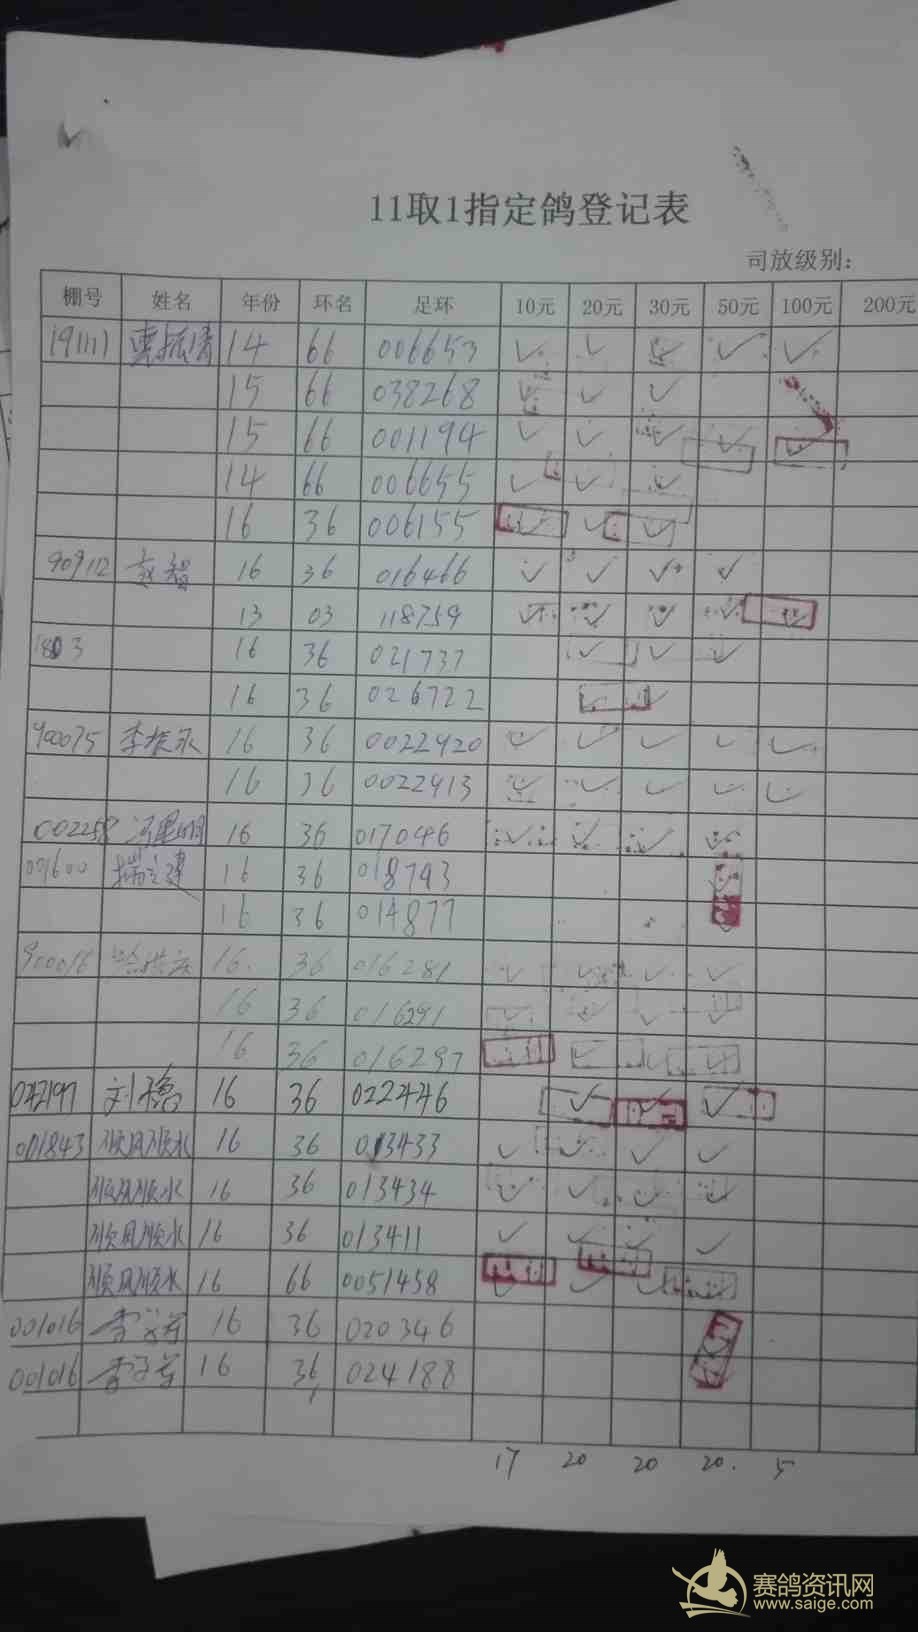 11取1指定鸽登记表
司放级别：
棚号 姓名 年份 环名 足环 10元 20元 30元 50元 100元 200元
191111 14 66 006653 ✓ ✓ ✓ ✓ ✓
15 66 038268 ✓ ✓ ✓
15 66 001194 ✓ ✓ ✓ ✓ ✓
14 66 006655 ✓ ✓ ✓
16 36 006155 ✓ ✓ ✓
909112 赵智 16 36 016466 ✓ ✓ ✓ ✓
13 03 118759 ✓ ✓ ✓ ✓
1803 16 36 021737 ✓ ✓ ✓
16 36 026722 ✓
900075 李振永 16 36 0022920 ✓ ✓ ✓ ✓ ✓
16 36 0022913 ✓ ✓ ✓ ✓ ✓
002258 16 36 017046 ✓ ✓ ✓ ✓
001600 16 36 018793
16 36 014877
900016 16 36 016281 ✓ ✓ ✓ ✓
16 36 016291 ✓ ✓ ✓ ✓
16 36 016297 ✓
042197 刘德 16 36 022446 ✓ ✓ ✓
001843 顺风顺水 16 36 013433 ✓ ✓ ✓ ✓
顺风顺水 16 36 013434 ✓ ✓ ✓ ✓
顺风顺水 16 36 013411 ✓ ✓ ✓ ✓
顺风顺水 16 66 0051458 ✓ ✓ ✓
001016 16 36 020346
001016 16 36 024188
17 20 20 20. 5
赛鸽资讯网
www.saige.com